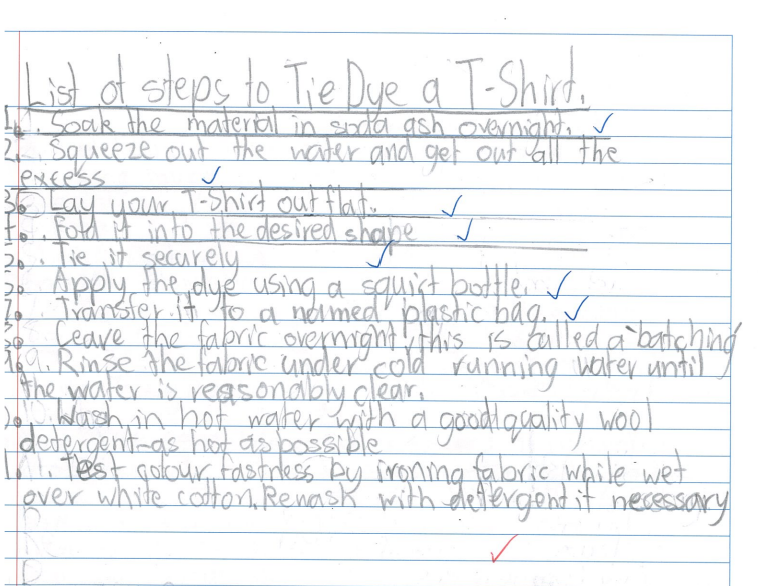 List of steps to Tie Dye a T-Shirt.
1. Soak the material in soda ash overnight.
2. Squeeze out the water and get out all the
excess
3. Lay your T-Shirt out flat.
. Fold it into the desired shape
. Tie it securely
Apply the dye using a squirt bottle.
7. Transfer it to a named plastic bag.
Leave the fabric overnight, this is called a batching
9. Rinse the fabric under cold running water until
the water is reasonably clear.
. Wash in hot water with a good quality wool
detergent-as hot as possible
11. Test colour fastness by ironing fabric while wet
over white cotton. Rewash with detergent if necessary